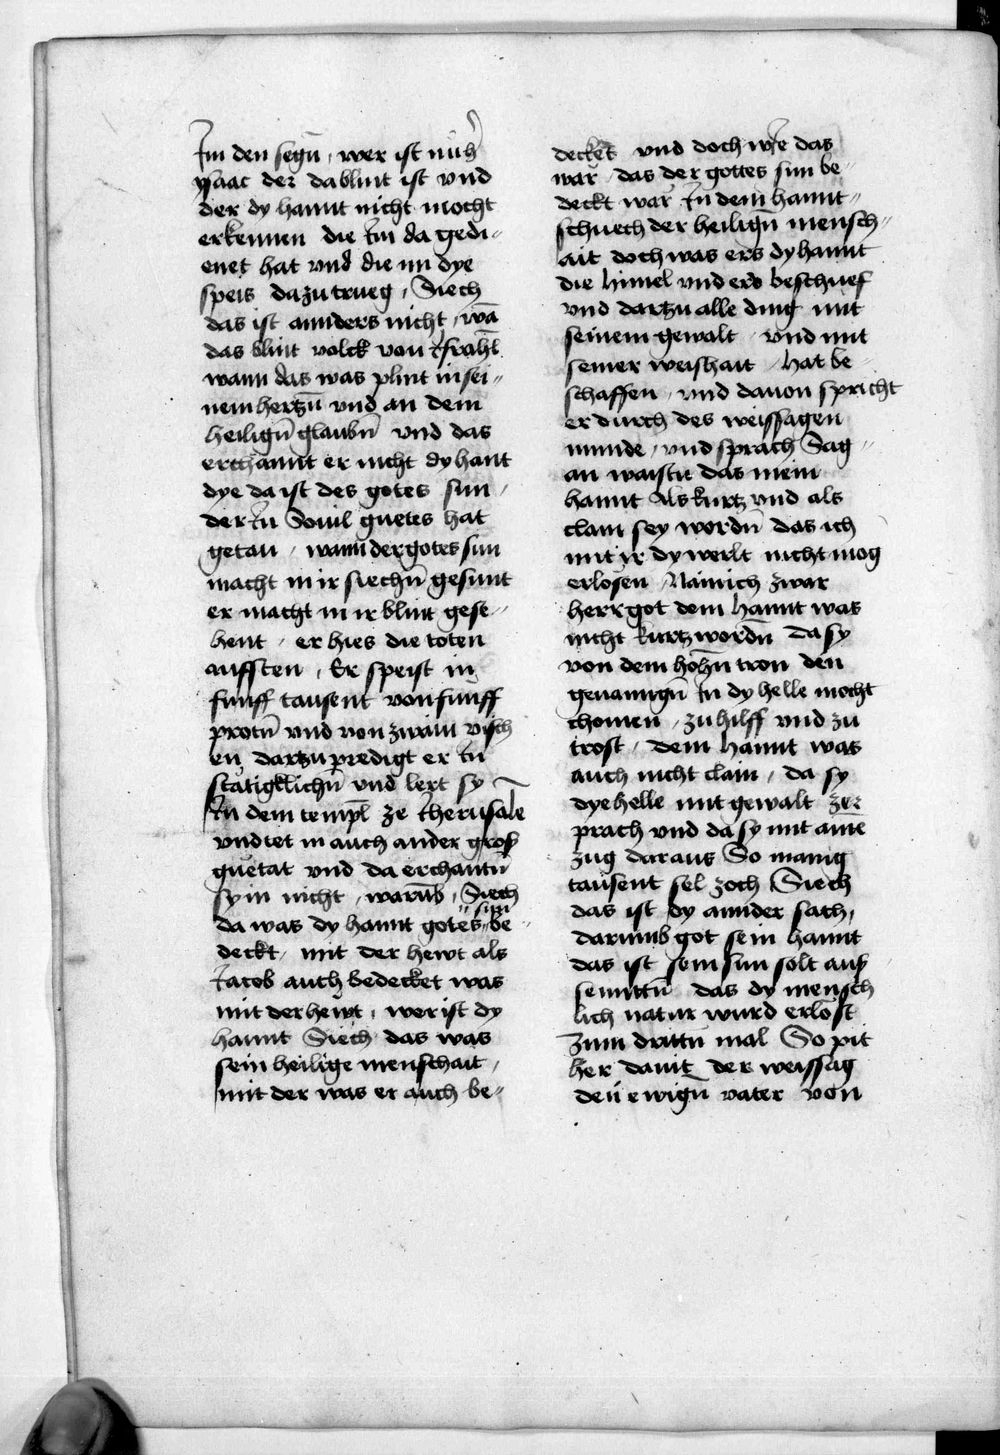 Im den segn̄ , wer ist nuͤ h̄
ysaac der da blint ist vnd
der dy hannt nicht mocht
erkennen die Im da gedi-
enet hat vnd die im dye
speis dazu trueg , Siech
das ist annders nicht , wān
das blint volck von Israhl̄
wann das was plint in sei-
nem hertzn̄ vnd an dem
heilign̄ glaubn̄ vnd das
erchannt er nicht dy hant
dye da ist des gotes sun ,
der In Souil guetes hat
getan , wann der gotes sun
macht in ir siechn̄ gesunt
er macht in ir blint gese-
hent , er hies die toten
auffsten , Er speist in
funff tausent von funff
protn̄ vnd von zwain visch
en dartzu predigt er In
statigklichn̄ vnd lert sy
In dem templ̄ ze Iherusalē
vnd tet in auch ander gross
guetat vnd da erchantn̄
sy in nicht , warūb , Siech
da was dy hannt gotes sun be-
deckt , mit der hewt als
Jacob auch bedecket was
mit der hewt , wer ist dy
hannt Siech das was
sein heilige menschait ,
mit der was er auch be-
decket vnd doch wie das
war das der gottes sun be-
deckt war In dem hannt-
schuech der heilign̄ mensch-
ait doch was ers dy hannt
die himel vnd erd beschuef
vnd dartzu alle ding mit
seinem gewalt vnd mit
seiner weishait hat be-
schaffen , vnd dauon spricht
er durch des weissagen
munde , vnd sprach Sag
an waistu das mein
hannt Als kurtz vnd als
clain sey wordn̄ das ich
mit ir dy werlt nicht mog
erlosen Nainich zwar
herr got dein hannt was
nicht kurtz wordn̄ da sy
von dem hohn̄ tron den
genannign̄ In dy helle mocht
chomen , zu hilff vnd zu
trost , dein hannt was
auch nicht clain , da sy
dye helle mit gewalt zer
prach vnd da sy mit aine
zug daraus So manig
tausent sel zoch Siech
das ist dy annder sach ,
darumb got sein hannt
das ist sein sun solt auss
senntn̄ das dy mensch
lich natur wurd erlost
Zum drittn̄ mal So pit
her dauit der weissag
den ewign̄ vater von